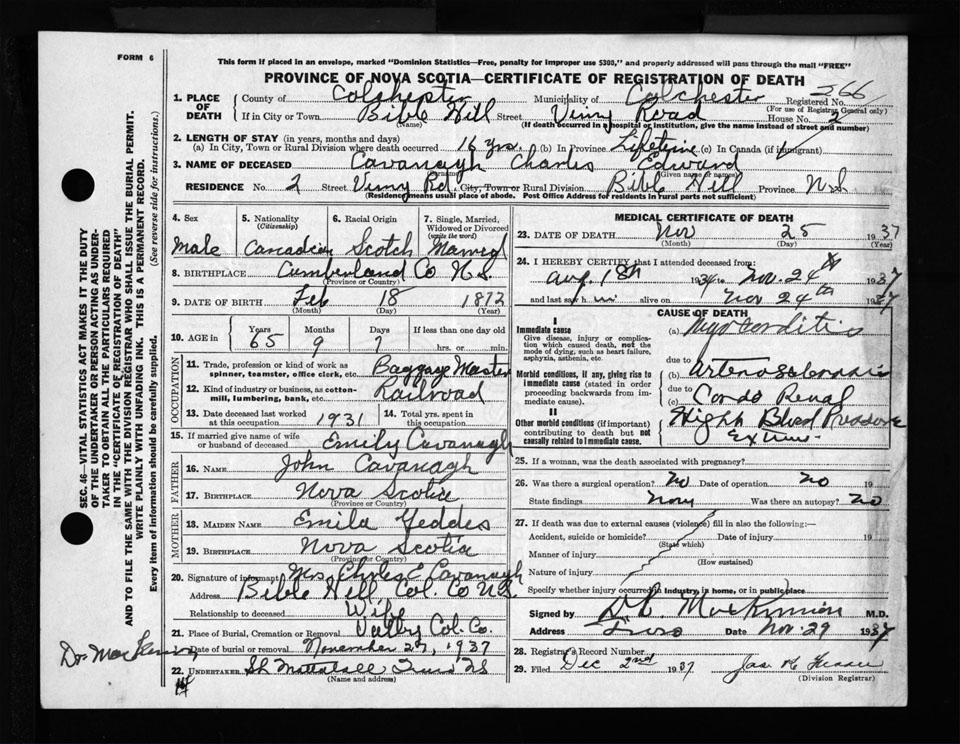 FORM 6
This form if placed in an envelope, marked "Dominion Statistics—Free, penalty for improper use $300," and properly addressed will pass through the mail "FREE"
PROVINCE OF NOVA SCOTIA—CERTIFICATE OF REGISTRATION OF DEATH
SEC. 46—VITAL STATISTICS ACT MAKES IT THE DUTY
OF THE UNDERTAKER OR PERSON ACTING AS UNDER-
TAKER TO OBTAIN ALL THE PARTICULARS REQUIRED
IN THE "CERTIFICATE OF REGISTRATION OF DEATH"
AND TO FILE THE SAME WITH THE DIVISION REGISTRAR WHO SHALL ISSUE THE BURIAL PERMIT.
WRITE PLAINLY WITH UNFADING INK. THIS IS A PERMANENT RECORD.
Every item of information should be carefully supplied. (See reverse side for instructions.)
1. PLACE OF DEATH
County of Colchester Municipality of Colchester Registered No. 266
(For use of Registrar General only)
If in City or Town Bible Hill Street Vimy Road House No. 2
(Name) (If death occurred in a hospital or institution, give the name instead of street and number)
2. LENGTH OF STAY (in years, months and days)
(a) In City, Town or Rural Division where death occurred 16 yrs. (b) In Province Lifetime (c) In Canada (if immigrant)
3. NAME OF DECEASED Cavanagh Charles Edward
(Surname) (Given name or names)
RESIDENCE No. 2 Street Vimy Rd. City, Town or Rural Division Bible Hill Province N.S.
(Residence means usual place of abode. Post Office Address for residents in rural parts not sufficient)
4. Sex
Male
5. Nationality
(Citizenship)
Canadian
6. Racial Origin
Scotch
7. Single, Married,
Widowed or Divorced
(write the word)
Married
8. BIRTHPLACE Cumberland Co N.S.
(Province or Country)
9. DATE OF BIRTH Feb 18 1872
(Month) (Day) (Year)
10. AGE in Years 65 Months 9 Days 7 If less than one day old
hrs. or min.
OCCUPATION
11. Trade, profession or kind of work as
spinner, teamster, office clerk, etc. Baggage Master
12. Kind of industry or business, as cotton-
mill, lumbering, bank, etc. Railroad
13. Date deceased last worked
at this occupation 1931
14. Total yrs. spent in
this occupation
15. If married give name of wife
or husband of deceased Emily Cavanagh
FATHER
16. Name John Cavanagh
17. Birthplace Nova Scotia
(Province or Country)
MOTHER
18. MAIDEN NAME Emila
19. Birthplace Nova Scotia
(Province or Country)
20. Signature of informant Mrs Charles E Cavanagh
Address Bible Hill Col. Co N.S.
Relationship to deceased Wife
21. Place of Burial, Cremation or Removal Valley Col. Co.
Date of burial or removal November 27, 1937
22. UNDERTAKER Mattatall NS
(Name and address)
MEDICAL CERTIFICATE OF DEATH
23. DATE OF DEATH Nov 25 1937
(Month) (Day) (Year)
24. I HEREBY CERTIFY that I attended deceased from:
Aug. 18th 1934 to Nov. 24th 1937
and last saw him alive on Nov 24th 1937
CAUSE OF DEATH
I
Immediate cause
Give disease, injury or complica-
tion which caused death, not the
mode of dying, such as heart failure,
asphyxia, asthenia, etc.
(a) Myocarditis
due to
Morbid conditions, if any, giving rise to
immediate cause (stated in order
proceeding backwards from im-
mediate cause).
(b) Arteriosclerosis
due to
(c) Cardo Renal
II
Other morbid conditions (if important)
contributing to death but not
causally related to immediate cause.
Hight Blood Pressure
25. If a woman, was the death associated with pregnancy?
26. Was there a surgical operation? No Date of operation no 19
State findings None Was there an autopsy? No
27. If death was due to external causes (violence) fill in also the following:—
Accident, suicide or homicide? Date of injury 19
(State which)
Manner of injury
(How sustained)
Nature of injury
Specify whether injury occurred in industry, in home, or in public place
Signed by MacKinnon M.D.
Address Truro Date Nov. 29 1937
28. Registrar's Record Number
29. Filed Dec 2nd 1937 Jas.
(Division Registrar)